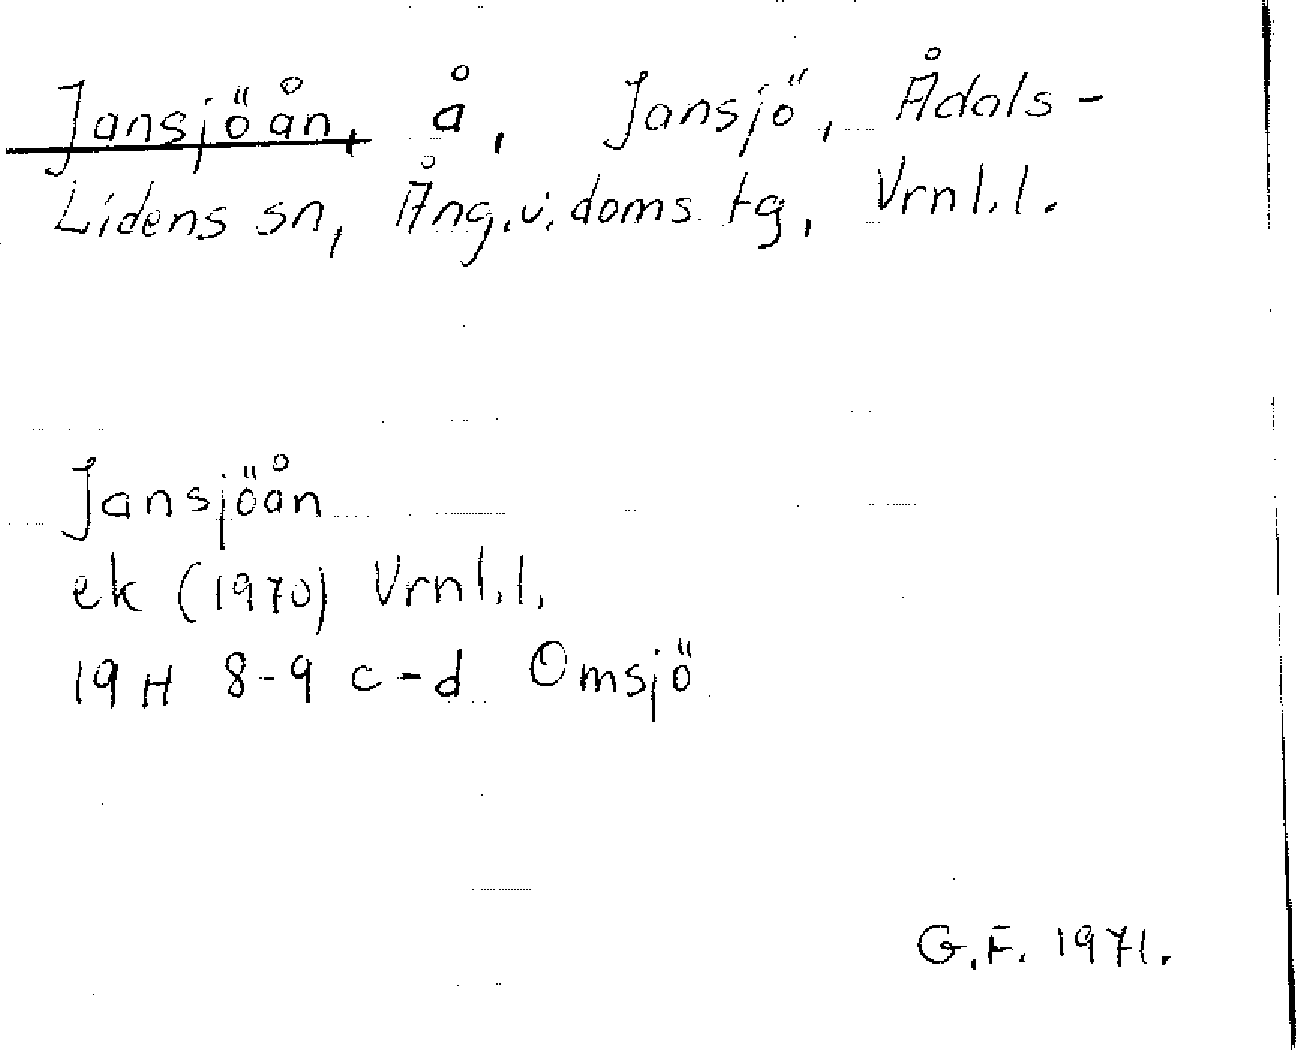 Jansjöån, å, Jansjö, Ådals-
Lidens sn, Ång.v.doms.tg, Vrnl.l.
Jansjöån
ek (1970) Vrnl.l.
19 H 8-9 c-d Omsjö
G.F. 1971.